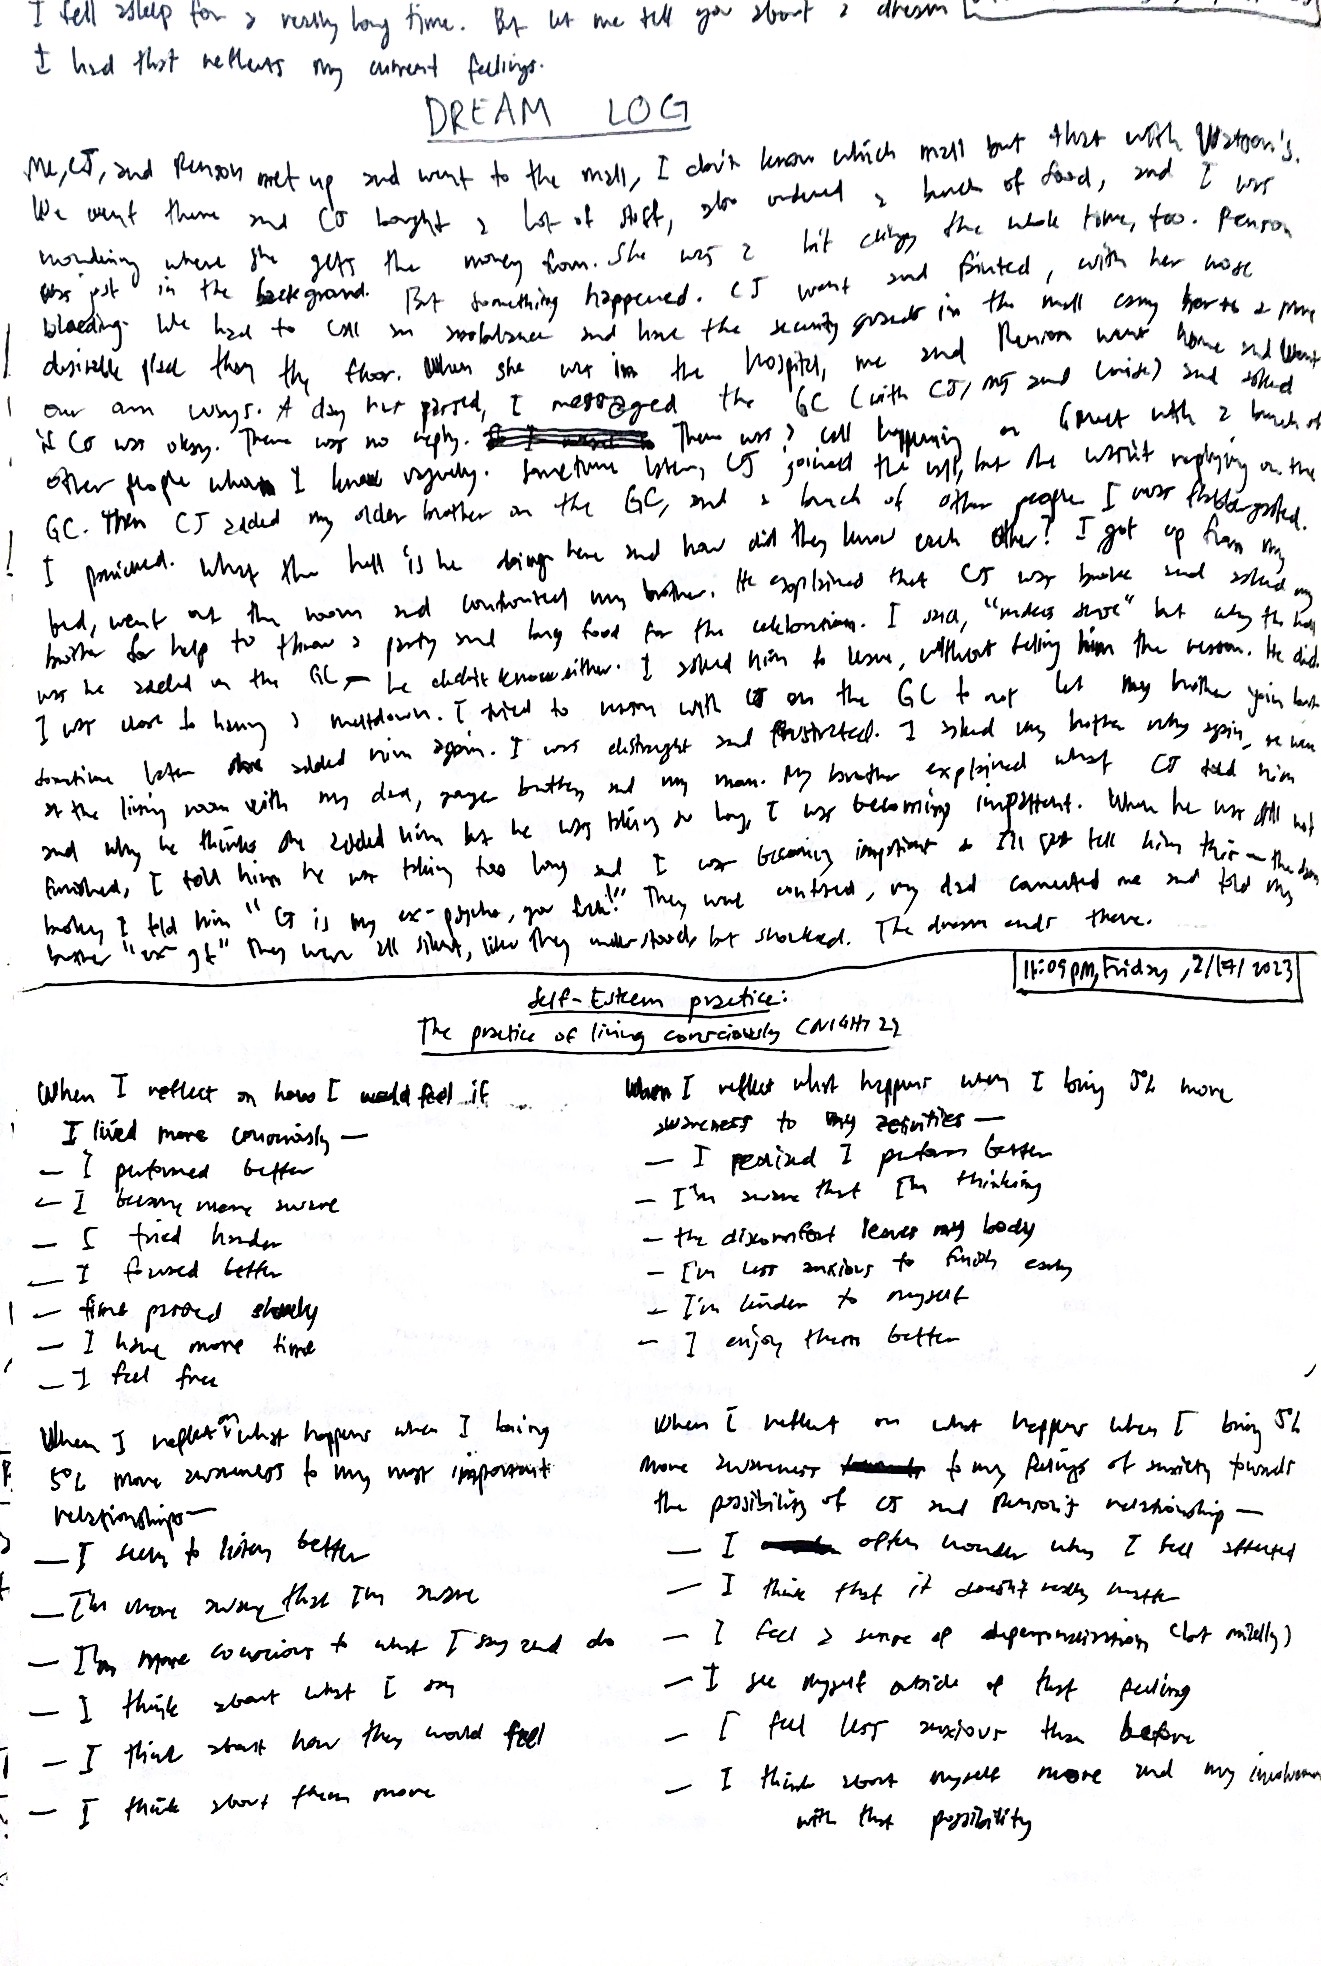 I fell asleep for a really long time. But let me tell you about a dream
I had that reflects my current feelings.
DREAM LOG
Me, CJ, and Renson met up and went to the mall, I don't know which mall but that with Watson's.
We went there and CJ bought a lot of stuff, also ordered a bunch of food, and I was
wondering where she gets the money from. She was a bit clingy the whole time, too. Renson
was just in the background. But something happened. CJ went and fainted, with her nose
bleeding. We had to call an ambulance and have the security guards in the mall carry her to a more
desirable place than the floor. When she was in the hospital, me and Renson went home and went
our own ways. A day has passed, I messaged the GC (with CJ, and ) and asked
if CJ was okay. There was no reply. There was a call happening on Gmeet with a bunch of
other people whom I know vaguely. Sometime later, CJ joined the call, but she wasn't replying on the
GC. Then CJ added my older brother on the GC, and a bunch of other people I was flabbergasted.
I panicked. What the hell is he doing here and how did they know each other? I got up from my
bed, went out the room and confronted my brother. He explained that CJ was broke and asked my
brother for help to throw a party and buy food for the celebration. I said, "makes sense" but why the hell
was he added on the GC — he didn't know either. I asked him to leave, without telling him the reason. He did.
I was close to having a meltdown. I tried to reason with CJ on the GC to not let my brother join but
sometime later she added him again. I was distraught and frustrated. I asked my brother why again, we were
at the living room with my dad, younger brother, and my mom. My brother explained what CJ told him
and why he thinks she added him but he was taking so long, I was becoming impatient. When he was still not
finished, I told him he was taking too long and I was becoming impatient so I'll just tell him this — the
broke, I told him "CJ is my ex-psycho, you fuck!" They were confused, my dad corrected me and told my
brother "ex-gf" They were all silent, like they understood but shocked. The dream ends there.
11:09 PM, Friday, 2/17/2023
Self-Esteem practice:
The practice of living consciously (NIGHT 2)
When I reflect on how I would feel if
I lived more consciously —
— I performed better
— I became more aware
— I tried harder
— I focused better
— time passed slowly
— I have more time
— I feel free
When I reflect what happens when I bring 5% more
awareness to my activities —
— I realized I perform better
— I'm aware that I'm thinking
— the discomfort leaves my body
— I'm less anxious to finish early
— I'm kinder to myself
— I enjoy them better
When I reflect on what happens when I bring
5% more awareness to my most important
relationships —
— I seem to listen better
— I'm more aware that I'm aware
— I'm more conscious to what I say and do
— I think about what I say
— I think about how they would feel
— I think about them more
When I reflect on what happens when I bring 5%
more awareness to my feelings of anxiety towards
the possibility of CJ and Renson's relationship —
— I often wonder why I feel affected
— I think that it doesn't really matter
— I feel a sense of depersonalization (but mildly)
— I see myself outside of that feeling
— I feel less anxious than before
— I think about myself more and my involvement
with that possibility